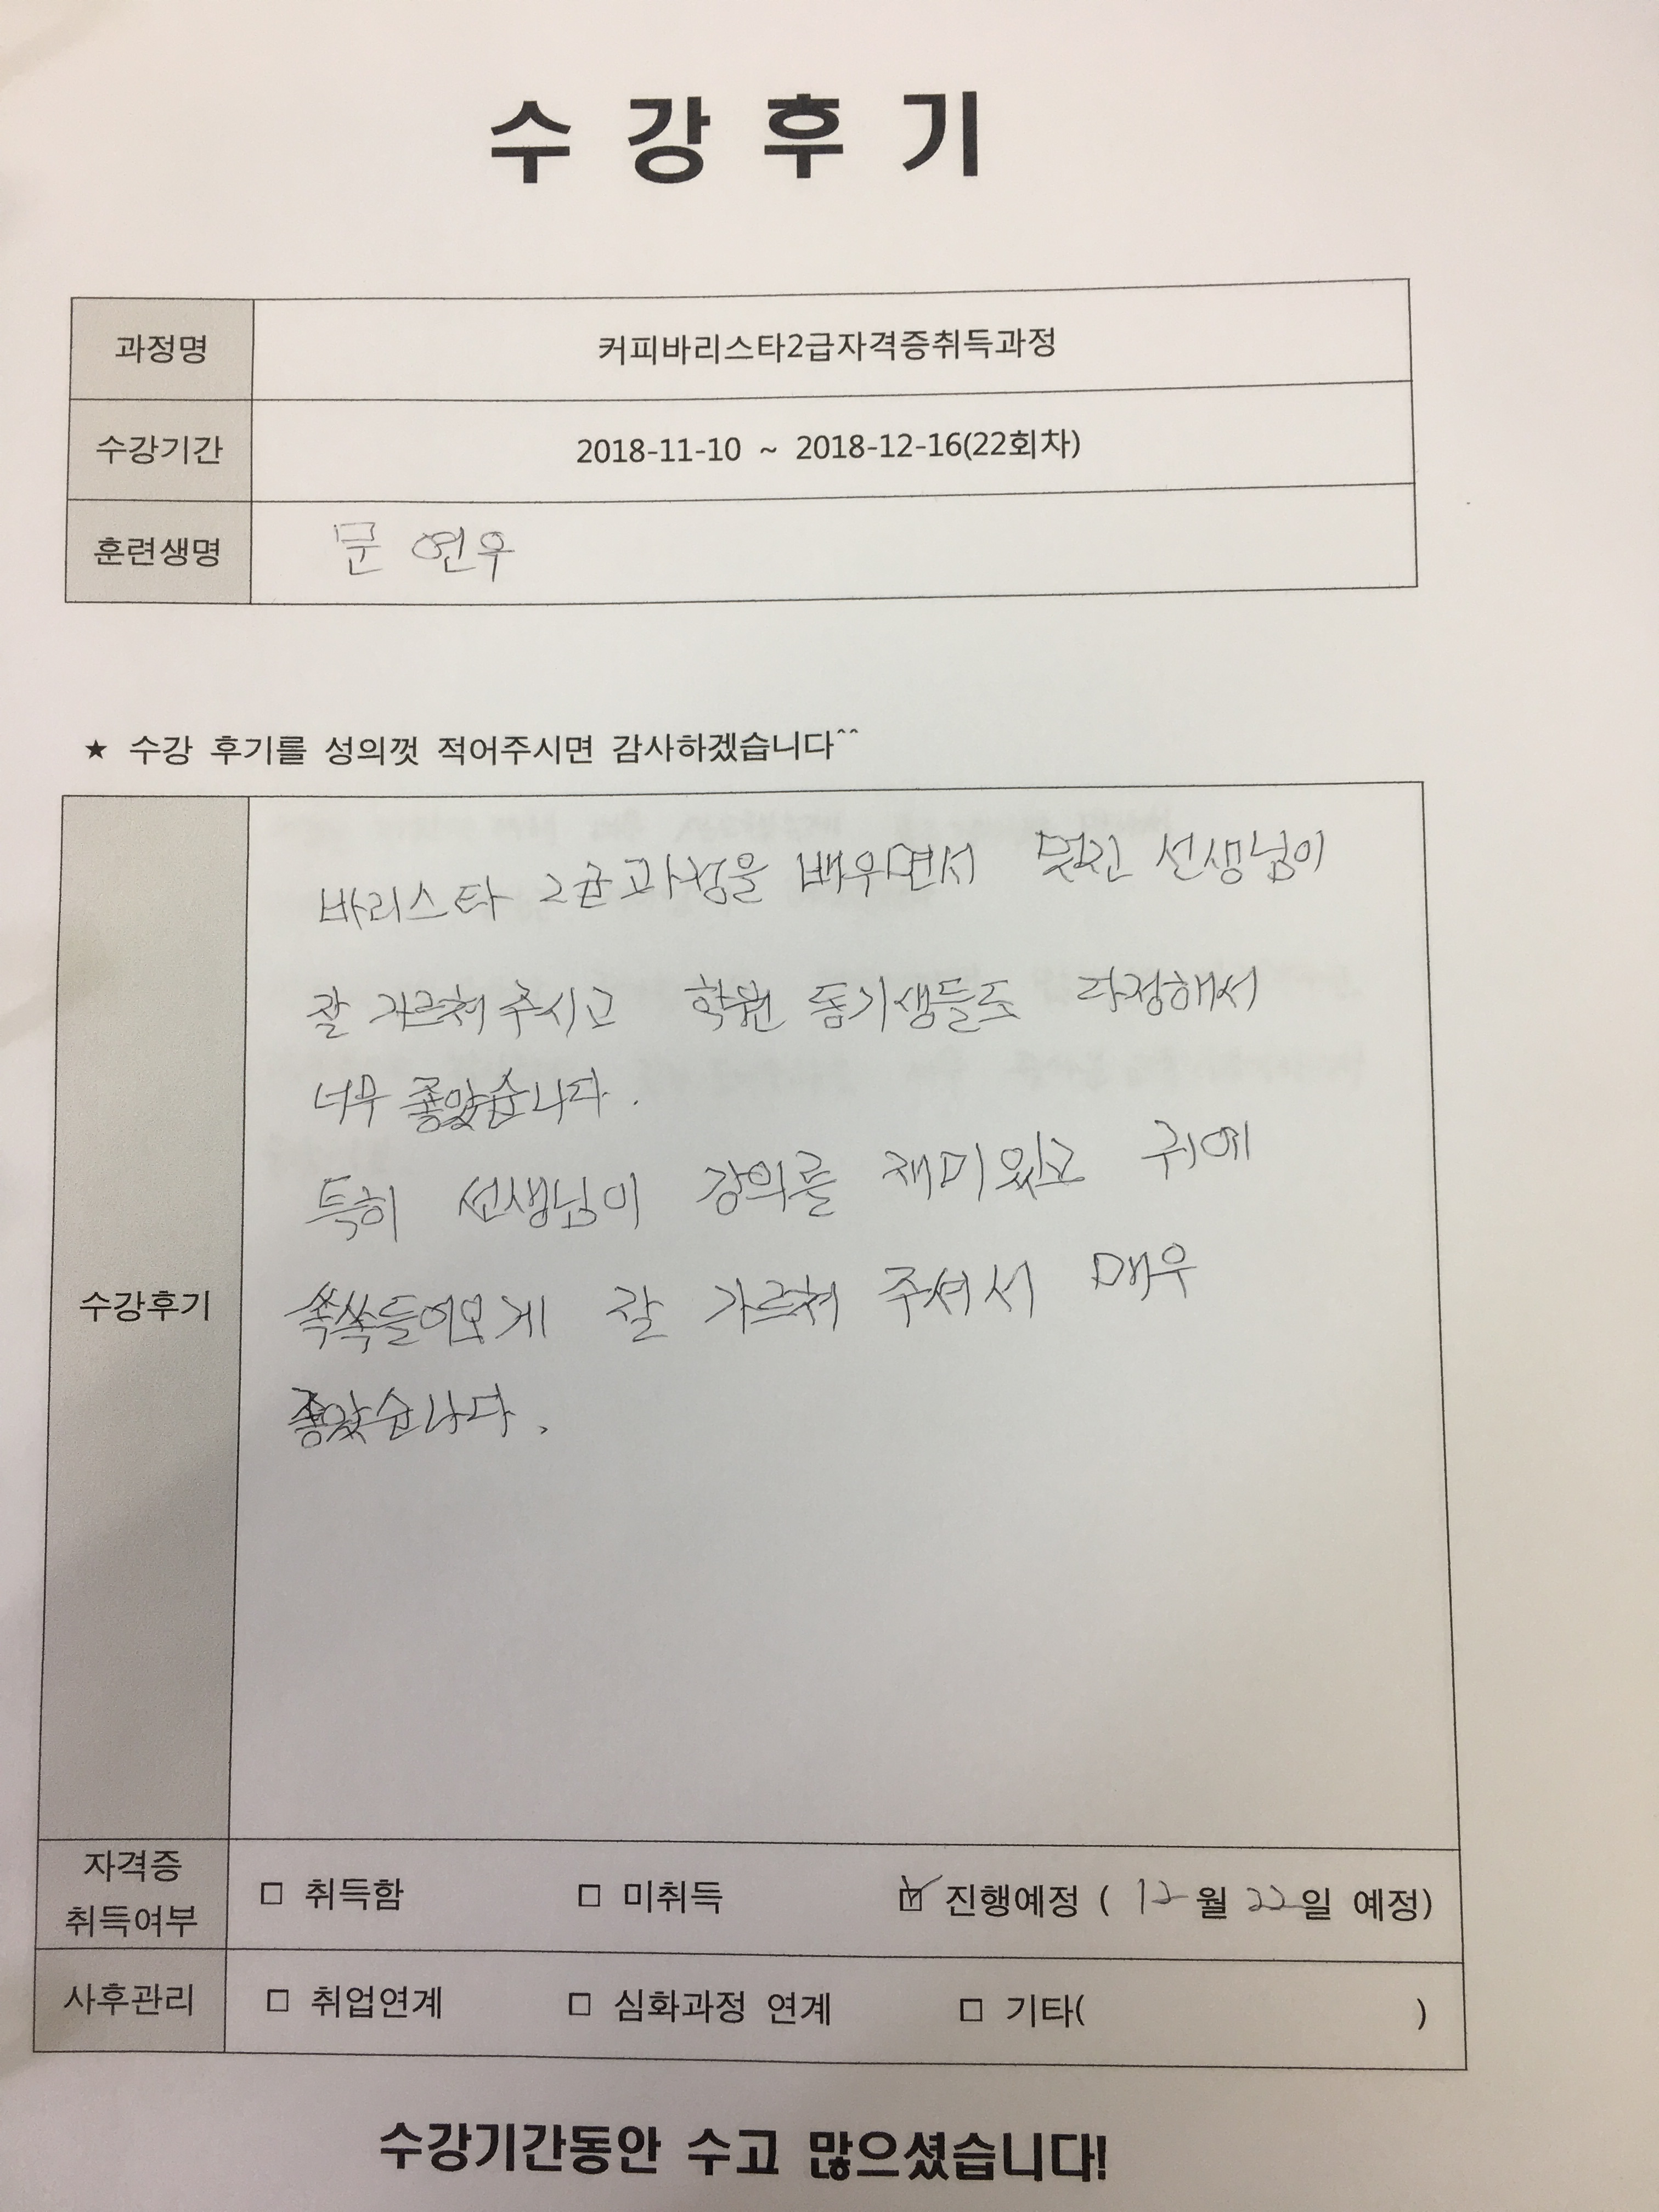 수강후기
과정명 커피바리스타2급자격증취득과정
수강기간 2018-11-10 ~ 2018-12-16(22회차)
훈련생명 문 연우
★ 수강 후기를 성의껏 적어주시면 감사하겠습니다^^
바리스타 2급과정을 배우면서 멋진 선생님이
잘 가르쳐 주시고 학원 동기생들도 다정해서
너무 좋았습니다.
특히 선생님이 강의를 재미있고 귀에
쏙쏙들어오게 잘 가르쳐 주셔서 매우
수강후기
좋았습니다.
자격증
취득여부
□ 취득함 □ 미취득 ☑ 진행예정 ( 12월 22일 예정)
사후관리 □ 취업연계 □ 심화과정 연계 □ 기타( )
수강기간동안 수고 많으셨습니다!